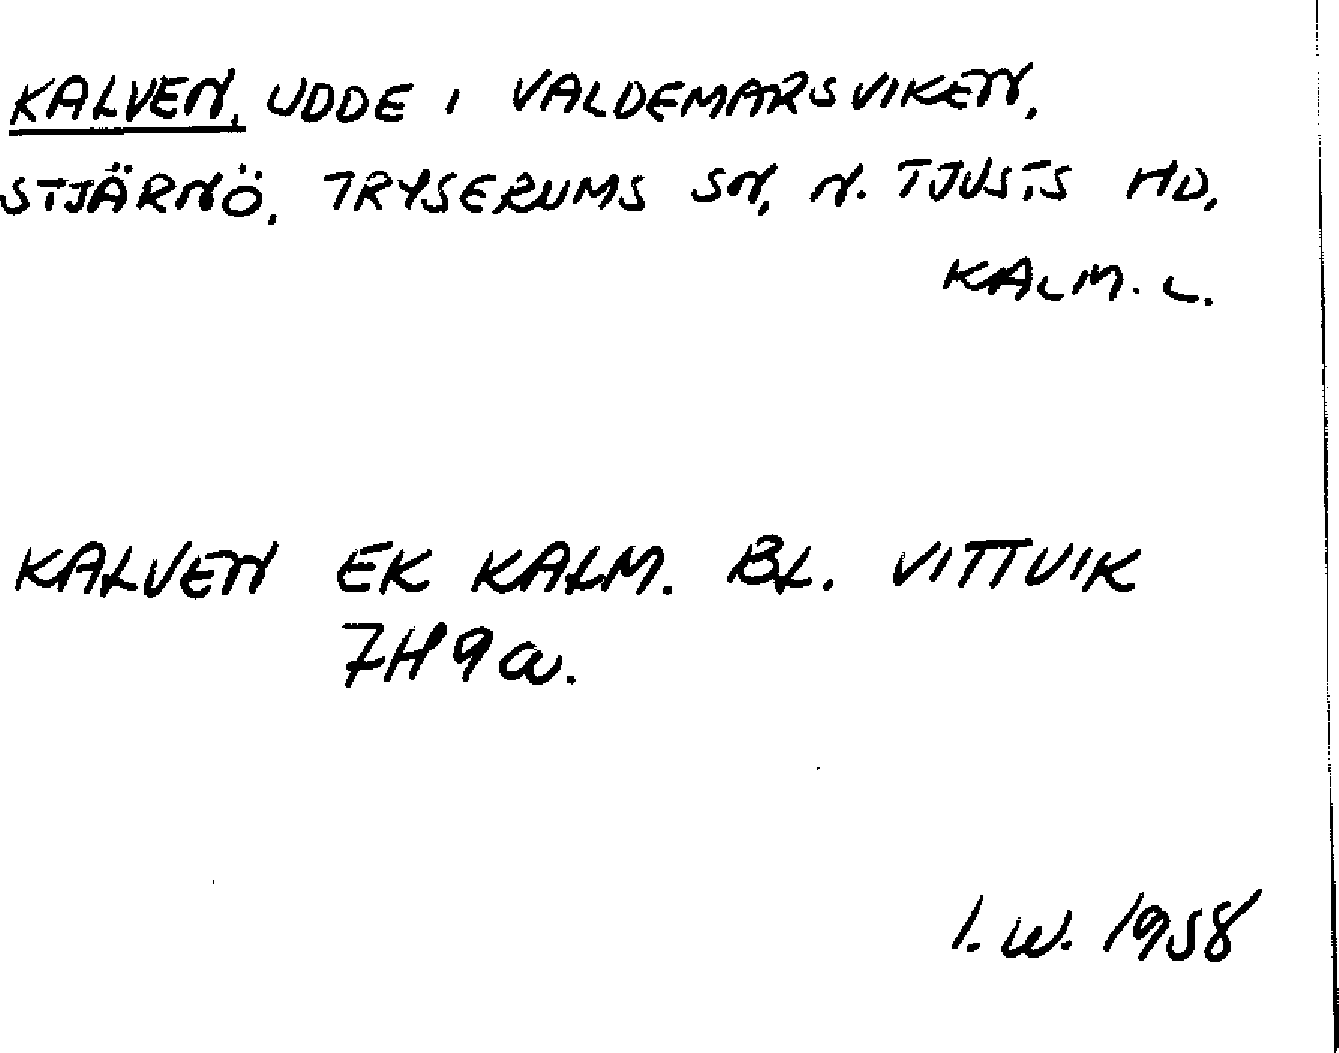 KALVEN, UDDE I VALDEMARSVIKEN,
STJÄRNÖ, TRYSERUMS SN, N. TJUSTS HD,
KALM. L.
KALVEN EK KALM. BL. VITTVIK
7H9a.
I. W. 1958